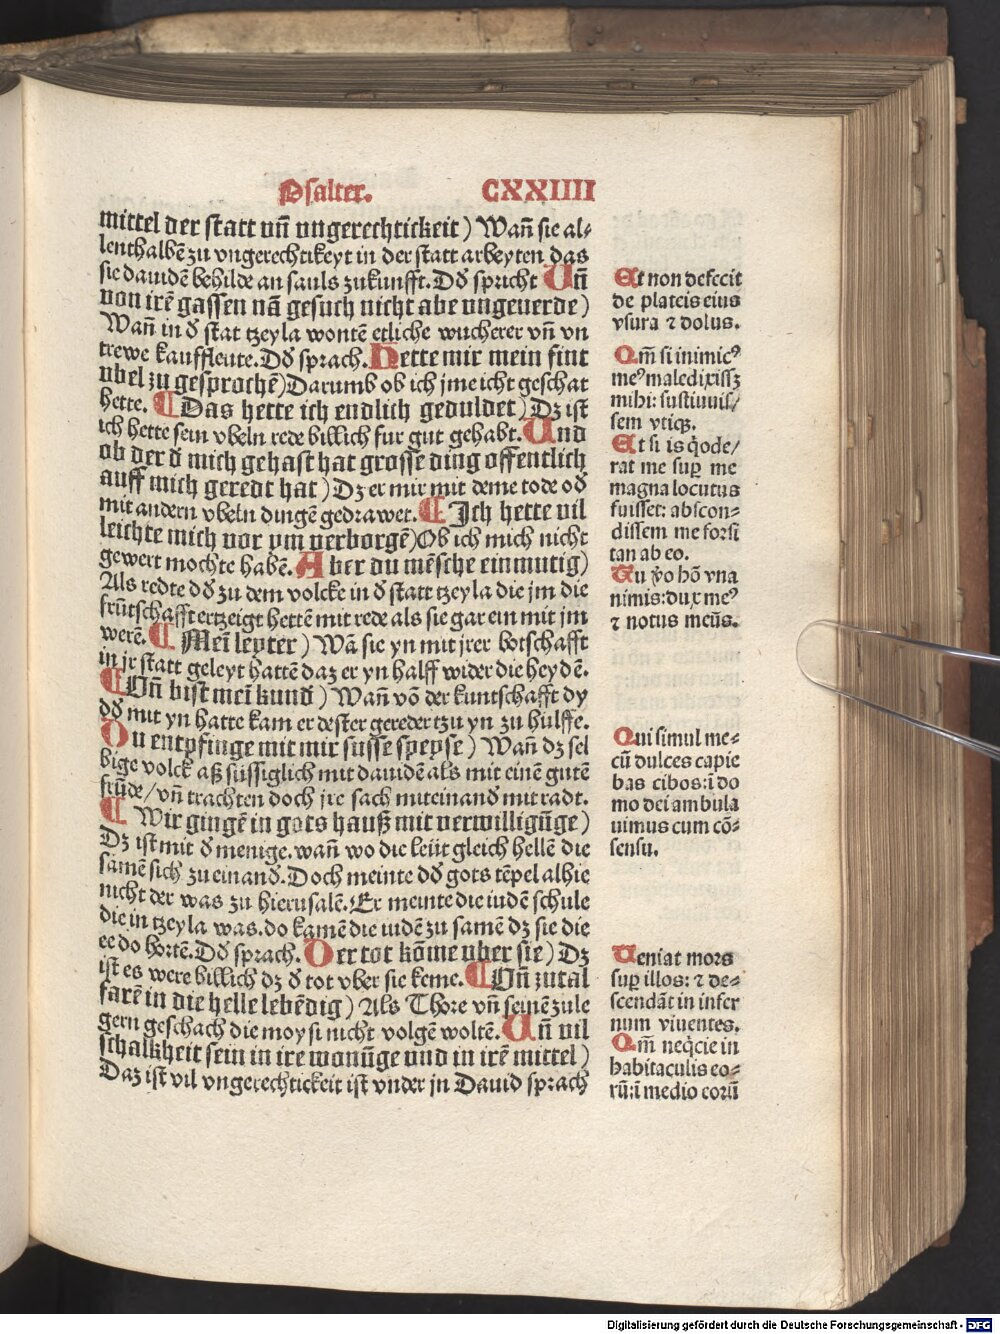 Psalter. CXXIIII
mittel der statt vñ vngerechtickeit) Wañ sie al⸗
lenthalbē zu vngerechtikeyt in der statt arbeyten das
sie dauidē behilde an sauls zukunfft. Dď spricht Uñ
von irē gassen nā gesuch nicht abe vngeuerde)
Wañ in ď stat tzeyla wontē etliche wucherer vñ vn
trewe kauffleute. Dď sprach. Hette mir mein fint
vbel zu gesprochē) Darumb ob ich jme icht geschat
hette. ¶ Das hette ich endlich geduldet) Dz ist
ich hette sein vbeln rede billich fur gut gehabt. Und
ob der ď mich gehast hat grosse ding offentlich
auff mich geredt hat) Dz er mir mit deme tode oď
mit andern vbeln dingē gedrawet. ¶ Ich hette vil
leichte mich vor ym verborgē) Ob ich mich nicht
gewert mochte habē. Aber du mēsche einmutig)
Als redte dď zu dem volcke in ď statt tzeyla die jm die
frūtschafft ertzeigt hettē mit rede als sie gar ein mit jm
werē. ¶ Mei leyter) Wā sie yn mit jrer botschafft
in jr statt geleyt hattē daz er yn halff wider die heydē.
¶ Vñ bist mei kund) Wañ vō der kuntschafft dy
dď mit yn hatte kam er dester gereder tzu yn zu hulffe.
Du entpfinge mit mir susse speyse) Wañ dz sel
bige volck aß süssiglich mit dauidē als mit einē gutē
frūde/ vñ trachten doch jre sach miteinanď mit radt.
¶ Wir gingē in gots hauß mit verwilligūge)
Dz ist mit ď menige. wañ wo die leüt gleich hellē die
samē sich zu einanď. Doch meinte dď gots tēpel alhie
nicht der was zu hierusalē. Er meinte die iudē schule
die in tzeyla was. do kamē die iudē zu samē dz sie die
ee do hortē. Dď sprach. Der tot kōme vber sie) Dz
ist es were billich dz ď tot vber sie keme. ¶ Vñ zutal
farē in die helle lebēdig) Als Thore vñ seinē zule
gern geschach die moysi nicht volgē woltē. Uñ vil
schalkheit sein in ire wonūge vnd in irē mittel)
Daz ist vil vngerechtickeit ist vnder jn Dauid sprach
Et non defecit
de plateis eius
vsura ⁊ dolus.
Qm̄ si inimicꝰ
meꝰ maledixissꝫ
mihi: sustinuis/
sem vtiqꝫ.
Et si is q̇ ode/
rat me suꝑ me
magna locutus
fuisset: abscon⸗
dissem me forsi
tan ab eo.
Tu v̊o hō vna
nimis: dux meꝰ
⁊ notus meūs.
Qui simul me⸗
cū dulces capie
bas cibos: ī do
mo dei ambula
uimus cum cō⸗
sensu.
Ueniat mors
suꝑ illos: ⁊ de⸗
scendāt in infer
num viuentes.
Qm̄ neq̇cie in
habitaculis eo⸗
rū: ī medio eorū
Digitalisierung gefördert durch die Deutsche Forschungsgemeinschaft - DFG